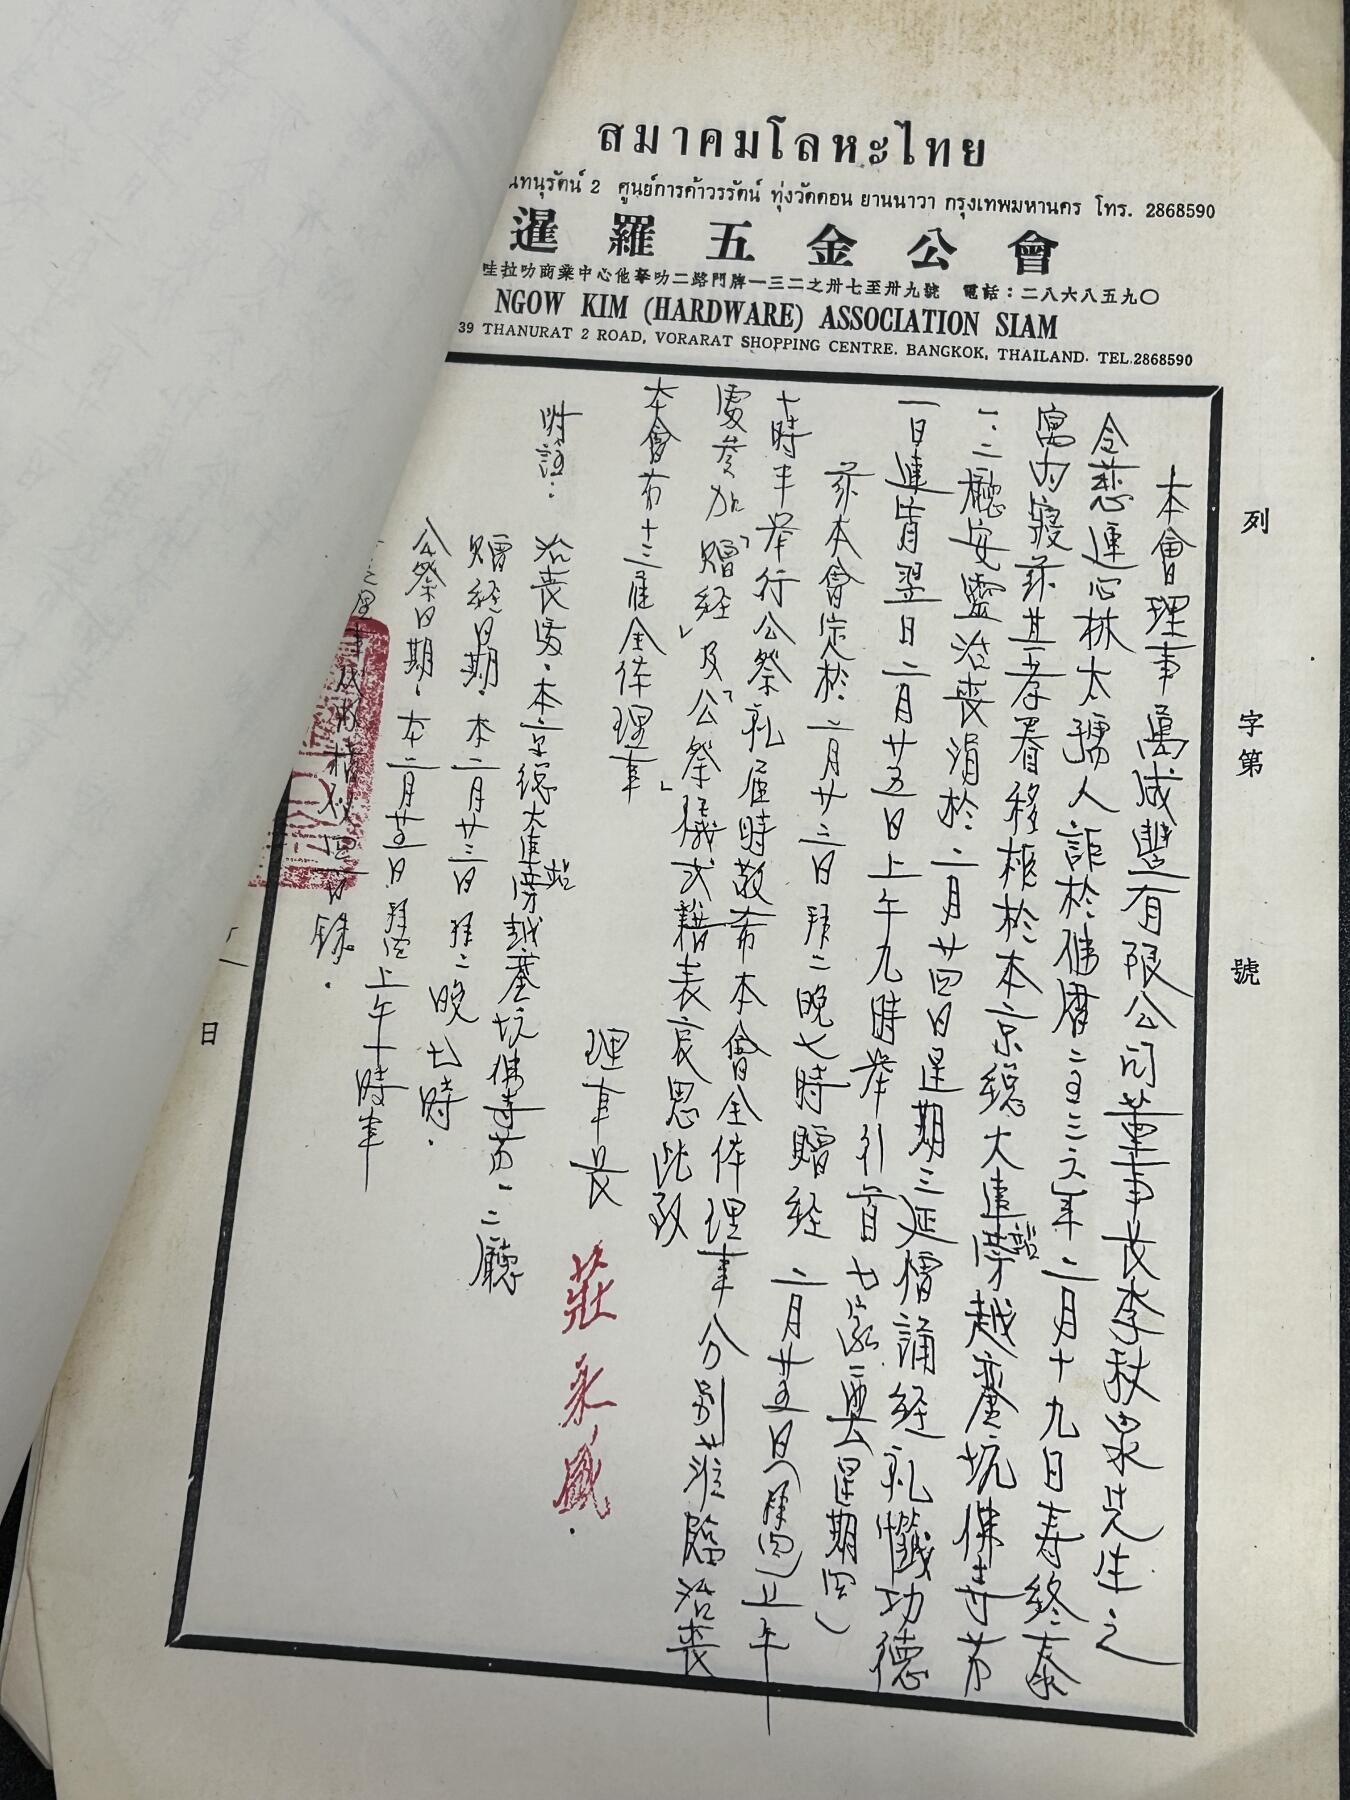 สมาคมโลหะไทย
นทนุรัตน์ 2 ศูนย์การค้าวรรัตน์ ทุ่งวัดดอน ยานนาวา กรุงเทพมหานคร โทร. 2868590
暹羅五金公會
哇拉叻商業中心他孥叻二路門牌一三二之卅七至卅九號 電話：二八六八五九〇
NGOW KIM (HARDWARE) ASSOCIATION SIAM
39 THANURAT 2 ROAD, VORARAT SHOPPING CENTRE. BANGKOK, THAILAND. TEL.2868590
列 字第 號
本會理事萬成豐有限公司董事長李秋泉先生之
令慈連心林太孺人詎於佛曆二五三六年二月十九日壽終泰
寓內寢茲其孝眷移柩於本京總大連站旁越臺坑佛寺第
一.二廳安靈治喪涓於二月廿四日星期三延僧誦經礼懺功德
一日連宵翌日二月廿五日上午九時舉引首七家奠(星期四)
茲本會定於二月廿三日拜二晚七時贈經 二月廿五日(拜四)上午
十時半舉行公祭礼屆時敬希本會全体理事分別蒞臨治喪
處參加「贈経」及「公祭」儀式藉表哀思此致
本會第十三届全体理事
理事長 莊永盛.
附註： 治喪處.本京總大連站旁越臺坑佛寺第一.二廳
贈経日期.本二月廿三日拜二晚七時.
公祭日期.本二月廿五日拜四上午十時半
日